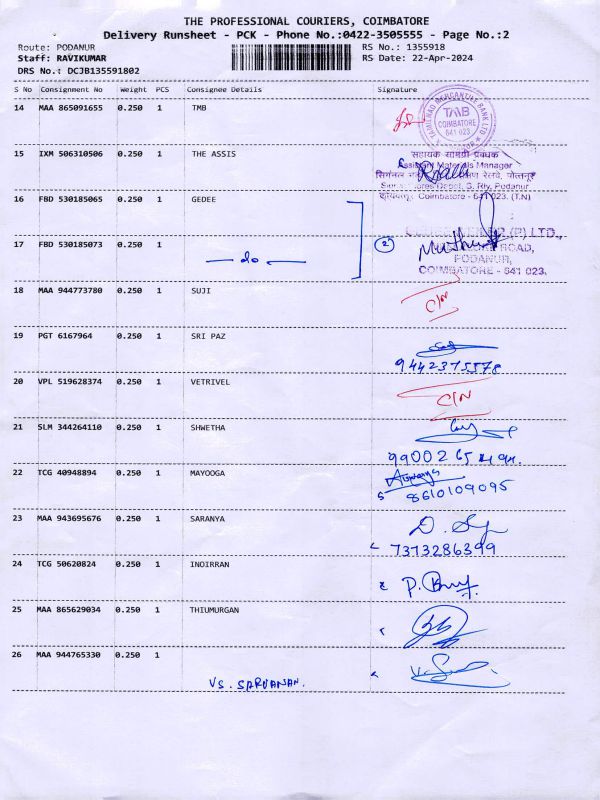 THE PROFESSIONAL COURIERS, COIMBATORE
Delivery Runsheet - PCK - Phone No.:0422-3505555 - Page No.:2
Route: PODANUR RS No.: 1355918
Staff: RAVIKUMAR RS Date: 22-Apr-2024
DRS No.: DCJB135591802
S No Consignment No Weight PCS Consignee Details Signature
14 MAA 865091655 0.250 1 TMB
TAMILNAD MERCANTILE BANK LTD
TMB
COIMBATORE
641 023
15 IXM 506310506 0.250 1 THE ASSIS
सहायक सामग्री प्रबंधक
Assistant Materials Manager
Stores Depot, S. Rly, Podanur
Coimbatore - 641 023. (T.N)
16 FBD 530185065 0.250 1 GEDEE
(P) LTD.,
17 FBD 530185073 0.250 1 — do — 2
ROAD,
PODANUR,
COIMBATORE - 641 023.
18 MAA 944773780 0.250 1 SUJI C/N
19 PGT 6167964 0.250 1 SRI PAZ
9442375578
20 VPL 519628374 0.250 1 VETRIVEL C/N
21 SLM 344264110 0.250 1 SHWETHA
22 TCG 40948894 0.250 1 MAYOOGA
8610109095
23 MAA 943695676 0.250 1 SARANYA
7373286399
24 TCG 50620824 0.250 1 INOIRRAN
25 MAA 865629034 0.250 1 THIUMURGAN
26 MAA 944765330 0.250 1
VS. SARVANAN.